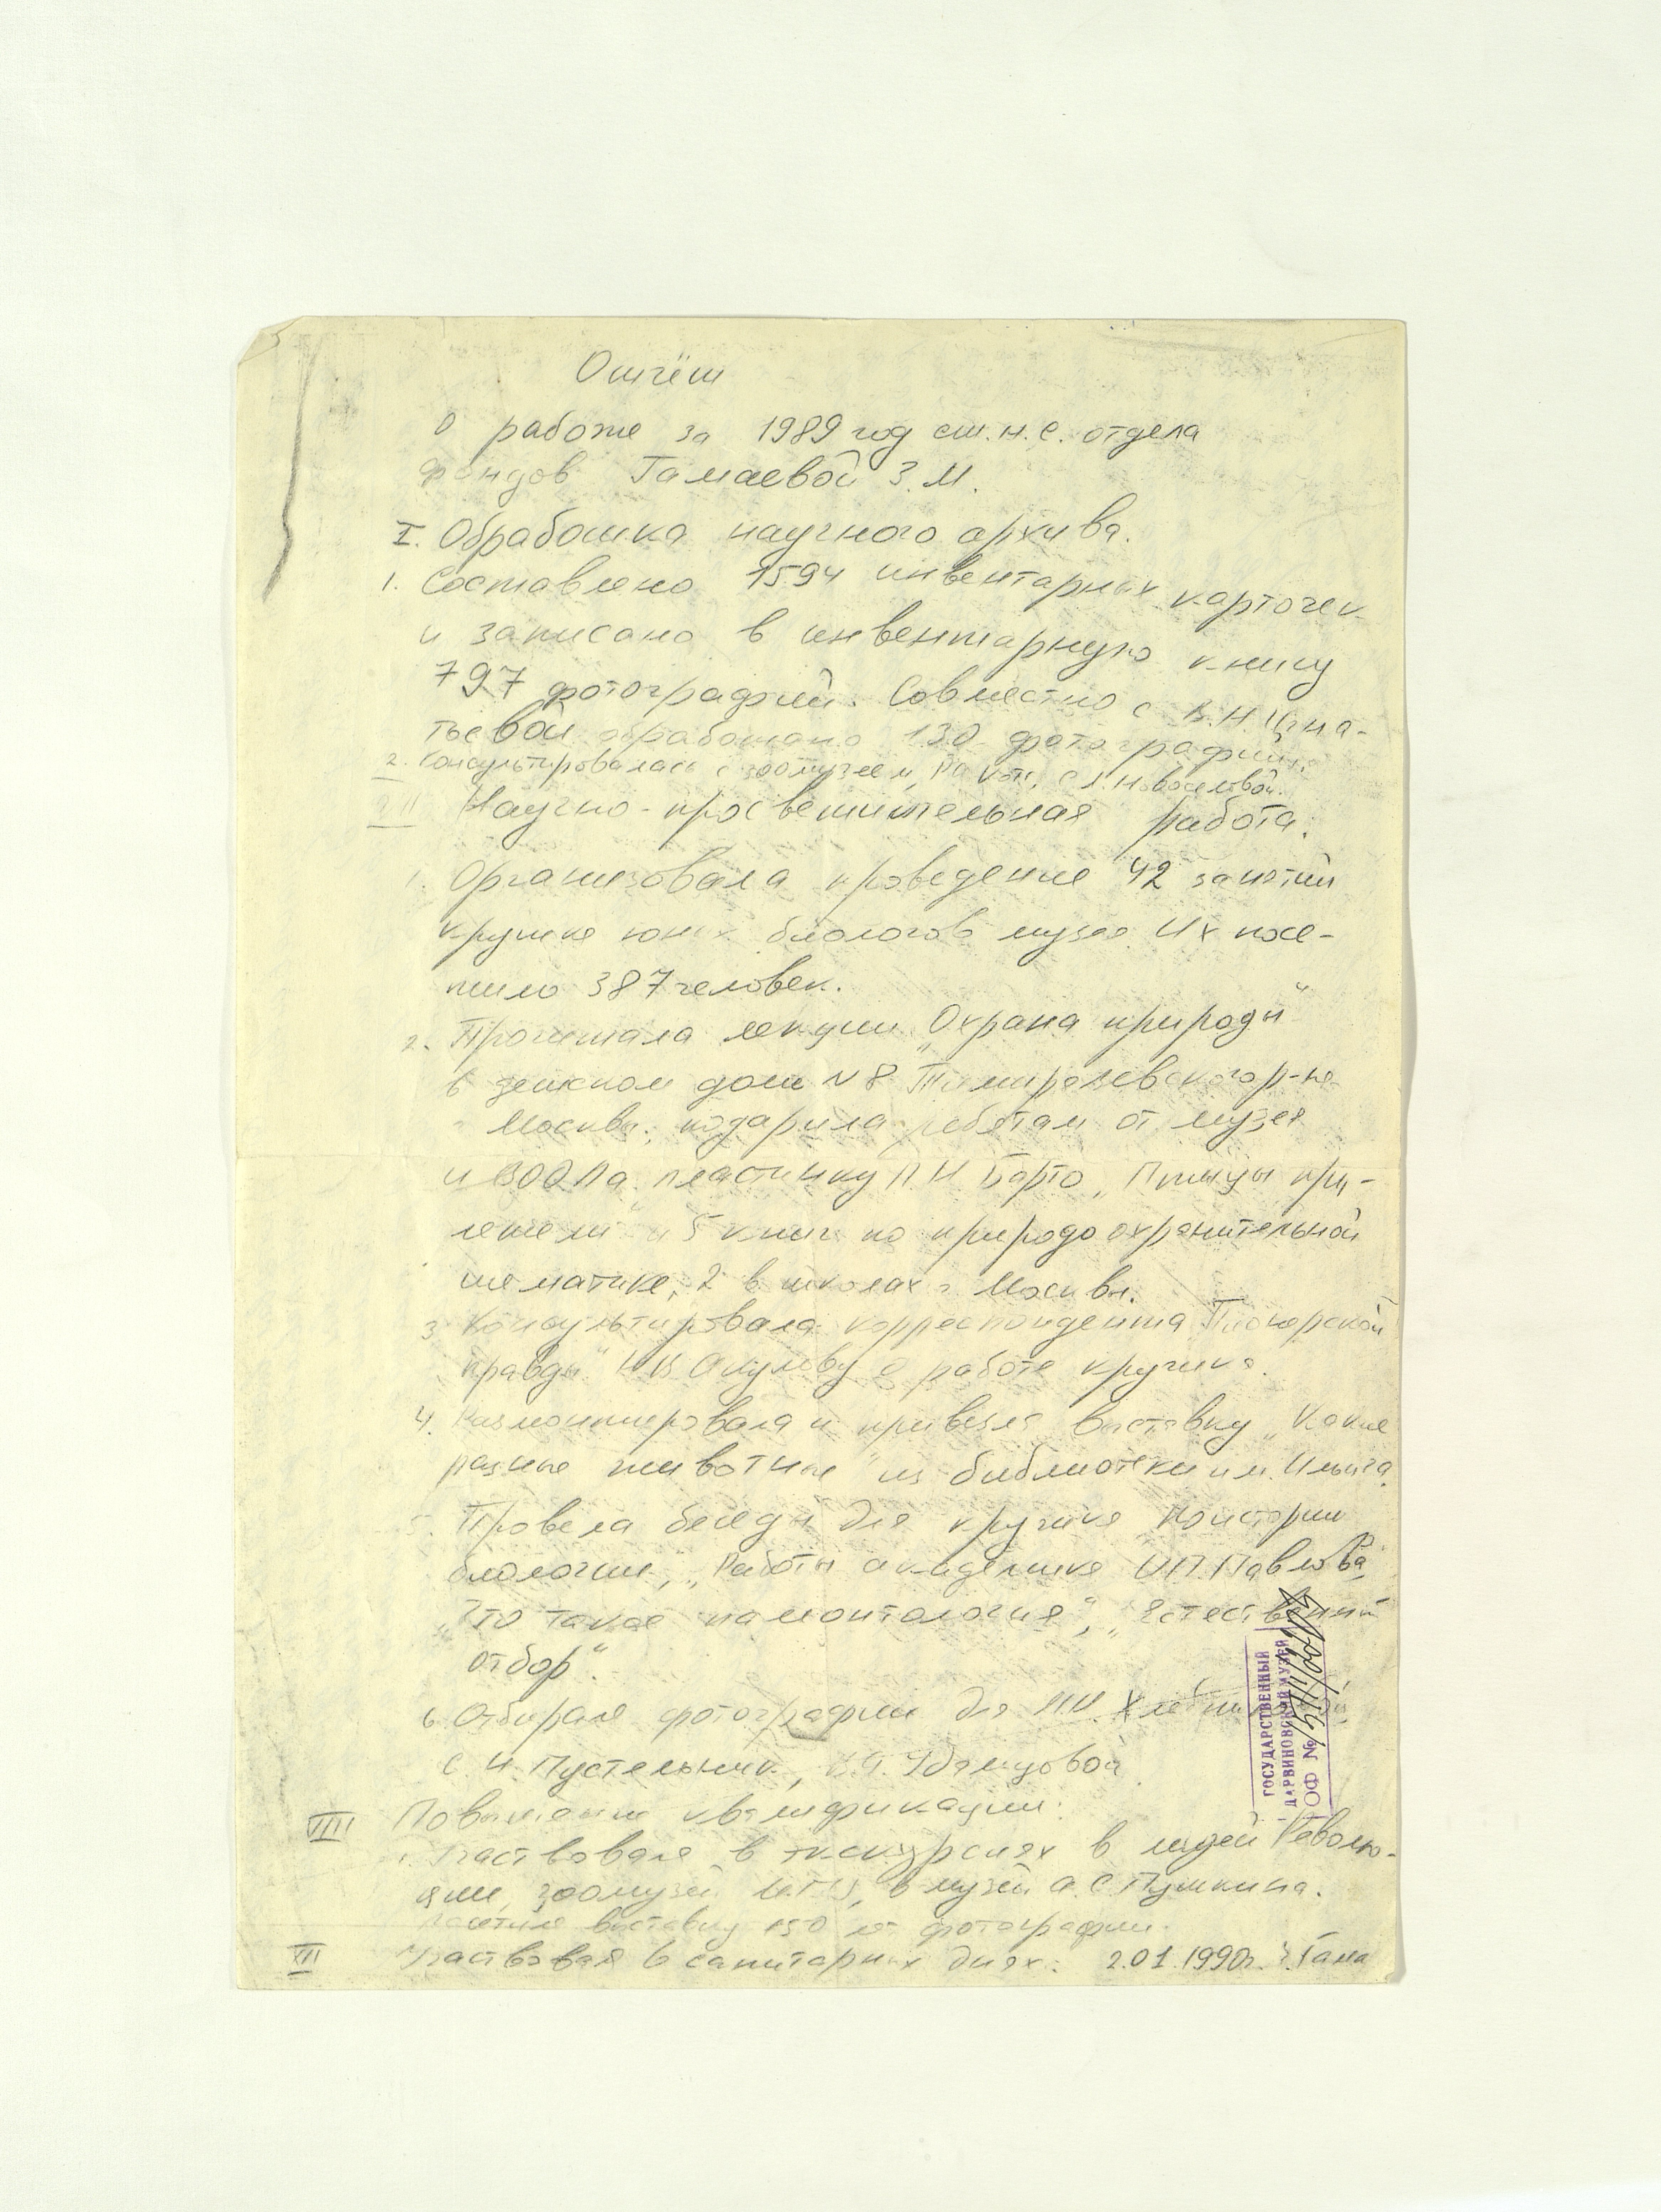 Отчёт
о работе за 1989 год ст.н.с. отдела
фондов Гамаевой З.М.
I. Обработка научного архива.
1. Составлено 1594 инвентарных карточек
и записано в инвентарную книгу
797 фотографий. Совместно с В.Н. Игна-
тьевой обработано 130 фотографий.
2. Консультировалась с зоомузеем, с Новоселовой.
II Научно-просветительная работа.
1. Организовала проведение 42 занятий
кружка юных биологов музея. Их посе-
тило 387 человек.
2. Прочитала лекции „Охрана природы"
в детском доме N 8 Тимирязевского р-на
Москвы, подарила ребятам от музея
и ВООПа пластинку Барто „Птицы при-
летели" и 5 книг по природоохранительной
тематике, 2 в школах г. Москвы.
3 Консультировала корреспондента Пионерской
правды" Н.В. Окулову о работе кружка.
4. Размонтировала и привезла выставку „Какие
разные животные" из библиотеки им. Ильича.
5. Провела беседы для кружка по истории
биологии, „Работы академика И.П. Павлова",
„Что такое палеонтология", „Естественный
отбор".
6 Отбирала фотографии для
С.И. Пустельник, Удальцовой
VIII Повышение квалификации:
1. Участвовала в экскурсиях в музей Револю-
ции, зоомузей МГУ, в музей А.С. Пушкина.
Посетила выставку 150 лет фотографии.
VII Участвовала в санитарных днях. 2.01.1990г. З. Гама
ГОСУДАРСТВЕННЫЙ
ДАРВИНОВСКИЙ МУЗЕЙ
ОФ №